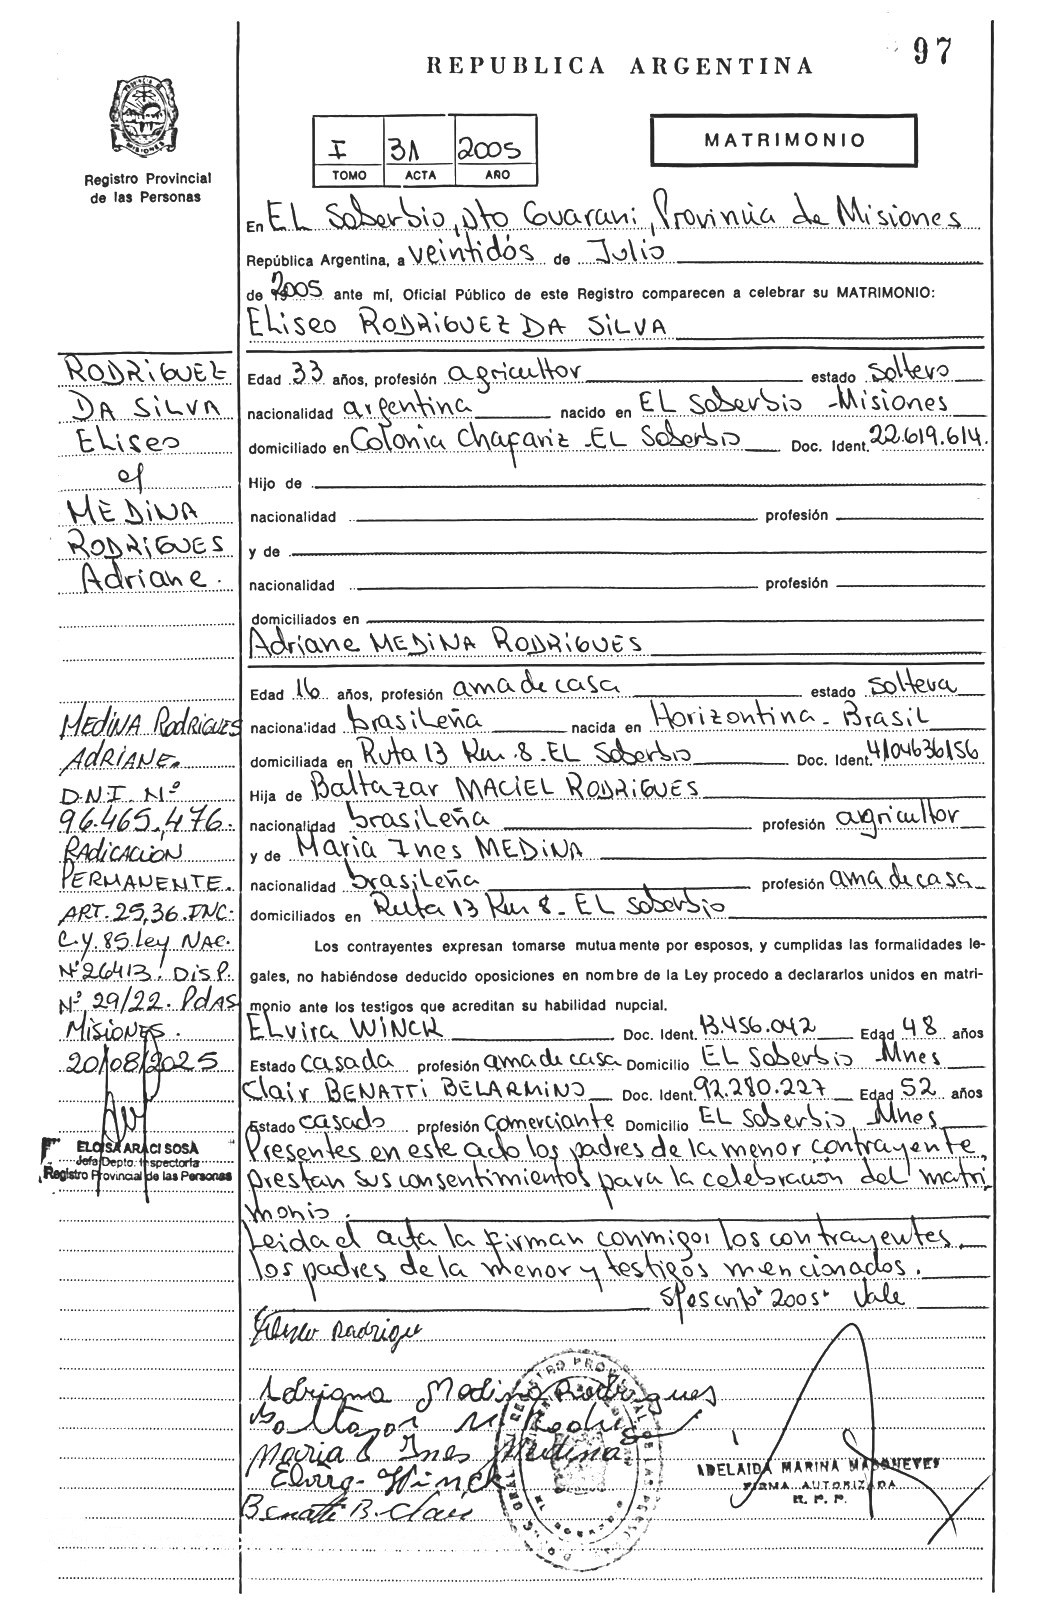 97
REPUBLICA ARGENTINA
Registro Provincial
de las Personas
I 31 2005
TOMO ACTA AÑO
MATRIMONIO
En EL Soberbio, Dto Guarani, Provincia de Misiones
República Argentina, a veintidós de Julio
de 2005 ante mí, Oficial Público de este Registro comparecen a celebrar su MATRIMONIO:
Eliseo RODRIGUEZ DA SILVA
Edad 33 años, profesión agricultor estado soltero
nacionalidad argentina nacido en EL Soberbio - Misiones
domiciliado en Colonia Chafariz - EL Soberbio Doc. Ident. 22.619.614.
Hijo de
nacionalidad profesión
y de
nacionalidad profesión
domiciliados en
Adriane MEDINA RODRIGUES
Edad 16 años, profesión ama de casa estado soltera
nacionalidad brasileña nacida en Horizontina - Brasil
domiciliada en Ruta 13 Km 8 - EL Soberbio Doc. Ident. 4104636156
Hija de Baltazar MACIEL RODRIGUES
nacionalidad brasileña profesión agricultor
y de Maria Ines MEDINA
nacionalidad brasileña profesión ama de casa
domiciliados en Ruta 13 Km 8 - EL Soberbio
Los contrayentes expresan tomarse mutuamente por esposos, y cumplidas las formalidades le-
gales, no habiéndose deducido oposiciones en nombre de la Ley procedo a declararlos unidos en matri-
monio ante los testigos que acreditan su habilidad nupcial.
ELvira WINCK Doc. Ident. 13.456.042 Edad 48 años
Estado casada profesión ama de casa Domicilio EL Soberbio Mnes
Clair BENATTI BELARMINO Doc. Ident. 92.280.227 Edad 52 años
Estado casado profesión comerciante Domicilio EL Soberbio Mnes
Presentes en este acto los padres de la menor contrayente,
prestan sus consentimientos para la celebración del matri
monio.
Leida el acta la firman conmigo: los contrayentes,
los padres de la menor y testigos mencionados.
S/escrito "2005" Vale
RODRIGUEZ
DA SILVA
Eliseo
c/
MEDINA
RODRIGUES
Adriane.
MEDINA RODRIGUES
ADRIANE.
D.N.I. Nº
96.465.476.
RADICACIÓN
PERMANENTE.
ART. 25, 36. INC.
C. Y. 85. Ley NAC.
Nº 26413. DISP.
Nº 29/22. PdAS
MISIONES.
20/08/2025
ELOISA ARACI SOSA
Jefa Depto. Inspectoría
Registro Provincial de las Personas
Eliseo Rodrigu
Adriana Medina Rodrigues
Baltazar M Rodrig
Maria Ines Medina
Elvira Winck
Benatti B. Clair
ADELAIDA MARINA MASNEVES
FIRMA AUTORIZADA
R. P. P.